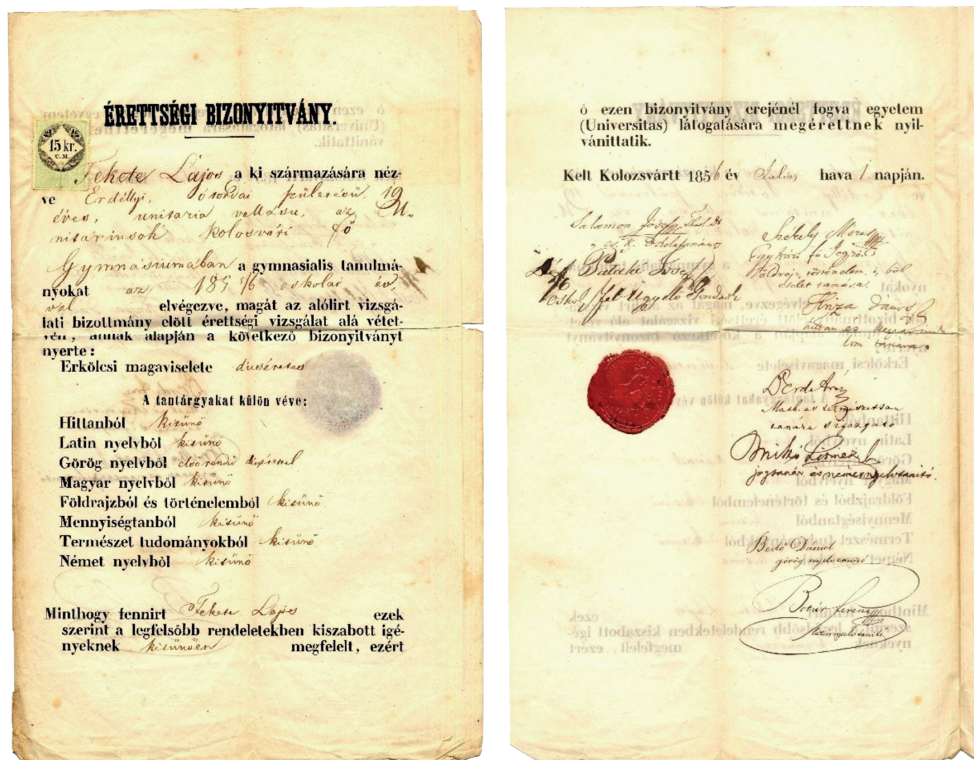 ÉRETTSÉGI BIZONYITVÁNY.
15 kr.
C.M.
Fekete Lajos a ki származására néz-
ve Erdélyi, ótordai születésü 19
éves, unitaria vallásu, az U-
nitáriusok kolosvári fő
Gymnásiumában a gymnasialis tanulmá-
nyokat az 1855/6 oskolai év.
vel elvégezve, magát az alólirt vizsgá-
lati bizottmány elött érettségi vizsgálat alá vétet-
vén, annak alapján a következő bizonyitványt
nyerte:
Erkölcsi magaviselete dicséretes
A tantárgyakat külön véve:
Hittanból kitünő
Latin nyelvből kitünő
Görög nyelvből első rendü
Magyar nyelvből kitünő
Földrajzból és történelemből kitünő
Mennyiségtanból kitünő
Természet tudományokból kitünő
Német nyelvből kitünő
Minthogy fennirt Fekete Lajos ezek
szerint a legfelsőbb rendeletekben kiszabott igé-
nyeknek kitünően megfelelt, ezért
ő ezen bizonyitvány erejénél fogva egyetem
(Universitas) látogatására megérettnek nyil-
vánittatik.
Kelt Kolozsvártt 1856 év Julius hava 1 napján.
Salamon József
Székely Mózes
fel Ügyelő Gondnok
Kinza Dános
tanára s igazgató
Mikó Lőrincz
jogtanár és német nyelvtanitó.
Benkő Dániel
görög nyelvtanitó
Ferencz